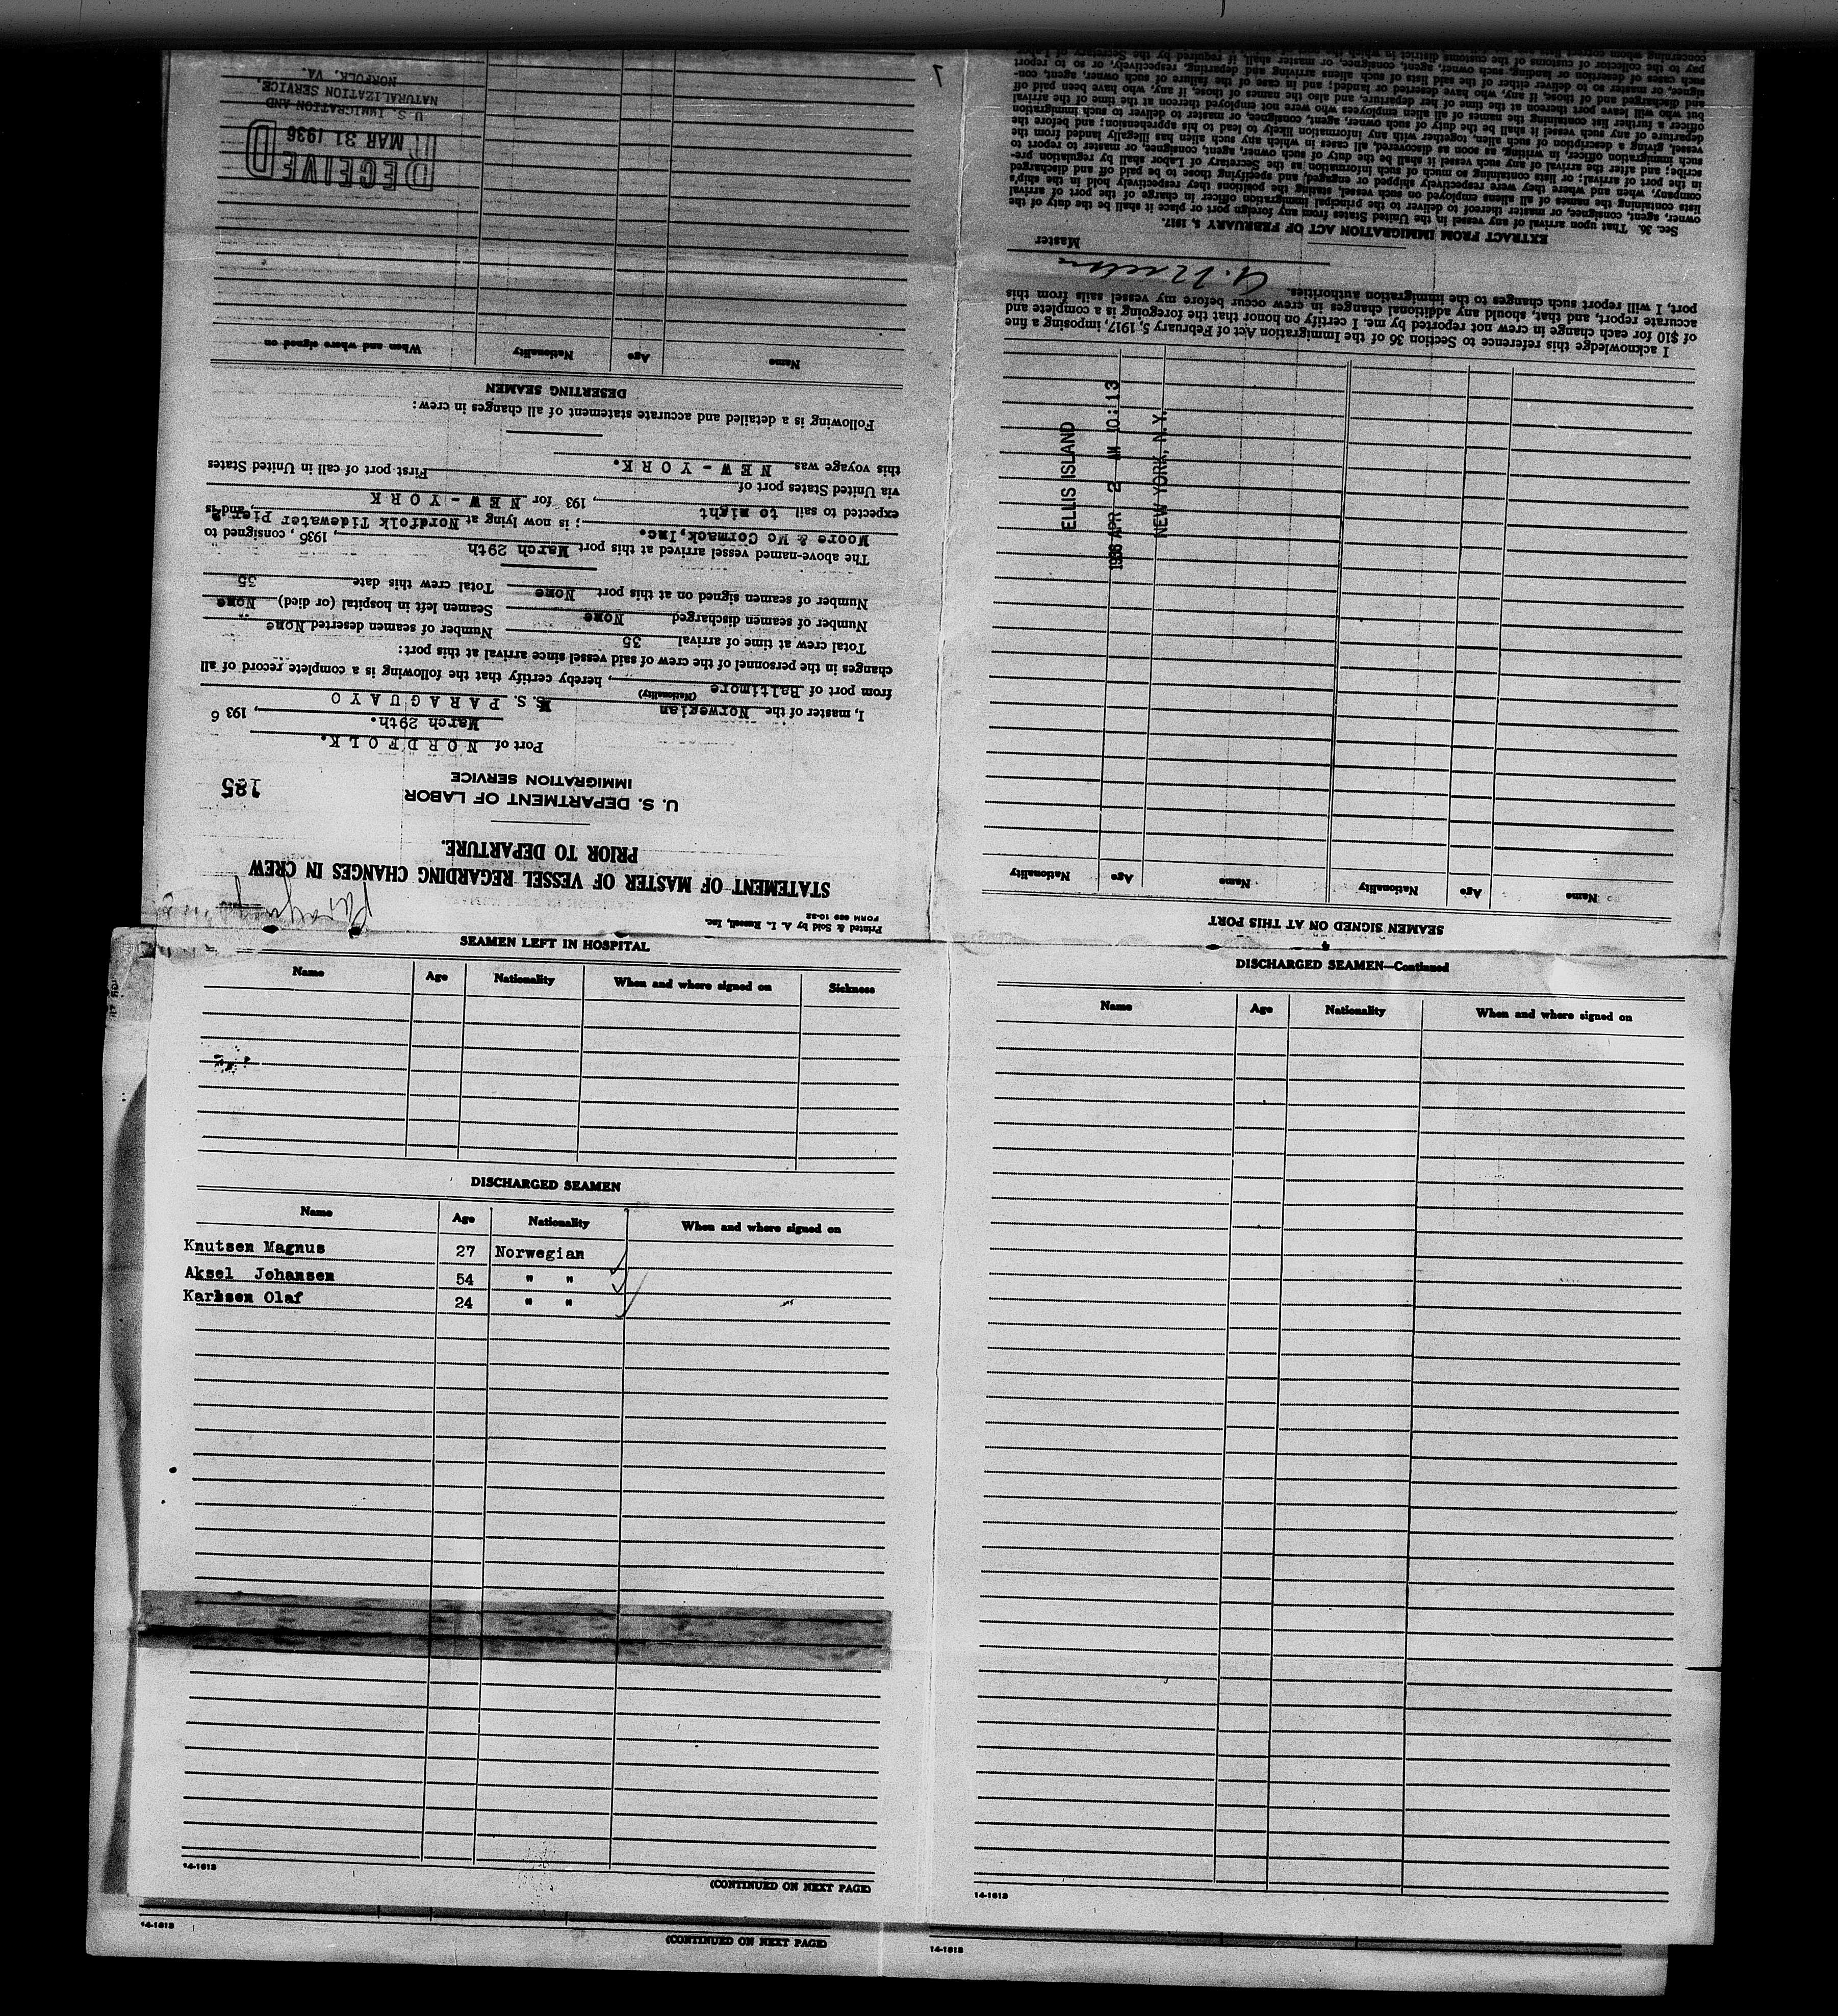 Printed & Sold by A. L. Russell, Inc.
FORM 689 10-32
STATEMENT OF MASTER OF VESSEL REGARDING CHANGES IN CREW
PRIOR TO DEPARTURE.
U. S. DEPARTMENT OF LABOR
IMMIGRATION SERVICE
185
Port of NORDFOLK.
March 29th. , 193 6
I, master of the Norwegian S. S. PARAGUAYO
(Nationality)
from port of Baltimore , hereby certify that the following is a complete record of all
changes in the personnel of the crew of said vessel since arrival at this port:
Total crew at time of arrival 35 Number of seamen deserted None
Number of seamen discharged None Seamen left in hospital (or died) None
Number of seamen signed on at this port None Total crew this date 35
The above-named vessel arrived at this port March 29th , 1936 , consigned to
Moore & Mc Cormack,Inc. ; is now lying at Nordfolk Tidewater Pier 2 , and is
expected to sail to night , 193 for NEW-YORK
via United States port of
this voyage was NEW-YORK. First port of call in United States
Following is a detailed and accurate statement of all changes in crew:
DESERTING SEAMEN
Name Age Nationality When and where signed on
RECEIVED
MAR 31 1936
U. S. IMMIGRATION AND
NATURALIZATION SERVICE,
NORFOLK, VA.
SEAMEN SIGNED ON AT THIS PORT
Name Age Nationality Name Age Nationality
ELLIS ISLAND
1936 APR 2 AM 10:13
NEW YORK, N.Y.
I acknowledge this reference to Section 36 of the Immigration Act of February 5, 1917, imposing a fine
of $10 for each change in crew not reported by me. I certify on honor that the foregoing is a complete and
accurate report, and that, should any additional changes in crew occur before my vessel sails from this
port, I will report such changes to the immigration authorities.
Master
EXTRACT FROM IMMIGRATION ACT OF FEBRUARY 5, 1917.
Sec. 36. That upon arrival of any vessel in the United States from any foreign port or place it shall be the duty of the
owner, agent, consignee, or master thereof to deliver to the principal immigration officer in charge of the port of arrival
lists containing the names of all aliens employed on such vessel, stating the positions they respectively hold in the ship's
company, when and where they were respectively shipped or engaged, and specifying those to be paid off and discharged
in the port of arrival; or lists containing so much of such information as the Secretary of Labor shall by regulation pre-
scribe; and after the arrival of any such vessel it shall be the duty of such owner, agent, consignee, or master to report to
such immigration officer, in writing, as soon as discovered, all cases in which any such alien has illegally landed from the
vessel, giving a description of such alien, together with any information likely to lead to his apprehension; and before the
departure of any such vessel it shall be the duty of such owner, agent, consignee, or master to deliver to such immigration
officer a further list containing the names of all alien employees who were not employed thereon at the time of the arrival
but who will leave port thereon at the time of her departure, and also the names of those, if any, who have been paid off
and discharged and of those, if any, who have deserted or landed; and in case of the failure of such owner, agent, con-
signee, or master so to deliver either of the said lists of such aliens arriving and departing, respectively, or so to report
such cases of desertion or landing, such owner, agent, consignee, or master shall, if required by the Secretary of Labor,
pay to the collector of customs of the customs district in which the
SEAMEN LEFT IN HOSPITAL
Name Age Nationality When and where signed on Sickness
DISCHARGED SEAMEN
Name Age Nationality When and where signed on
Knutsen Magnus 27 Norwegian
Aksel Johansen 54 " "
Karlsen Olaf 24 " "
14-1613
(CONTINUED ON NEXT PAGE)
14-1613
(CONTINUED ON NEXT PAGE)
DISCHARGED SEAMEN—Continued
Name Age Nationality When and where signed on
14-1613
14-1613